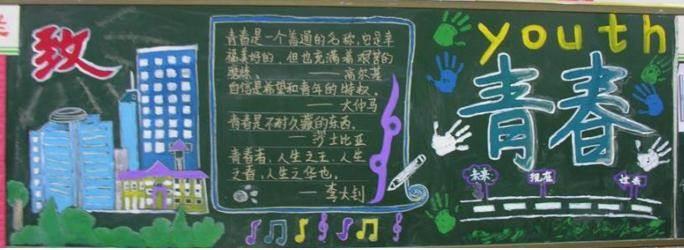 致
青春是一个普通的名称,它是幸
福美好的,但也充满着艰苦的
磨练、——高尔基
自信是希望和青年的特权。
——大仲马
青春是不耐久藏的东西。
——莎士比亚
青春者,人生之王,人生
之春,人生之华也。
——李大钊
youth
青春
未来
现在
过去